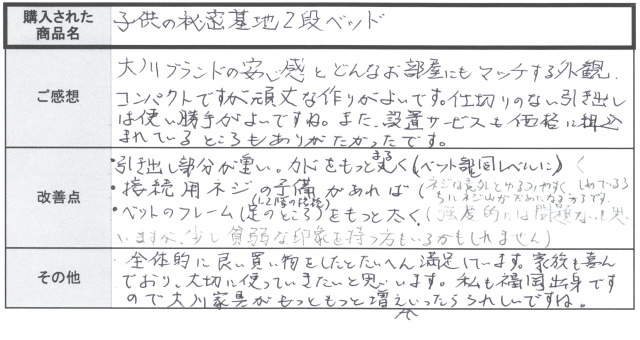 購入された
商品名
子供の秘密基地2段ベッド
ご感想
大川ブランドの安心感とどんなお部屋にもマッチする外観、
コンパクトですが頑丈な作りがよいです。仕切りのない引き出し
は使い勝手がよいですね。また、設置サービスも価格に組込
まれているところもありがたかったです。
改善点
・引き出し部分が重い。カドをもっと丸く(ベット部同レベルに)
まる
・接続用ネジの予備があれば(ネジは意外とゆるみやすく、しめている
うちにネジ山がだめになるからです。
(1、2個の接続)
・ベットのフレーム(足のところ)をもっと太く(強度的には問題ないと思
いますが、少し貧弱な印象を持つ方もいるかもしれません)
その他
全体的に良い買い物をしたとたいへん満足しています。家族も喜ん
でおり、大切に使っていきたいと思います。私も福岡出身です
ので大川家具がもっともっと増えていったらうれしいですね。